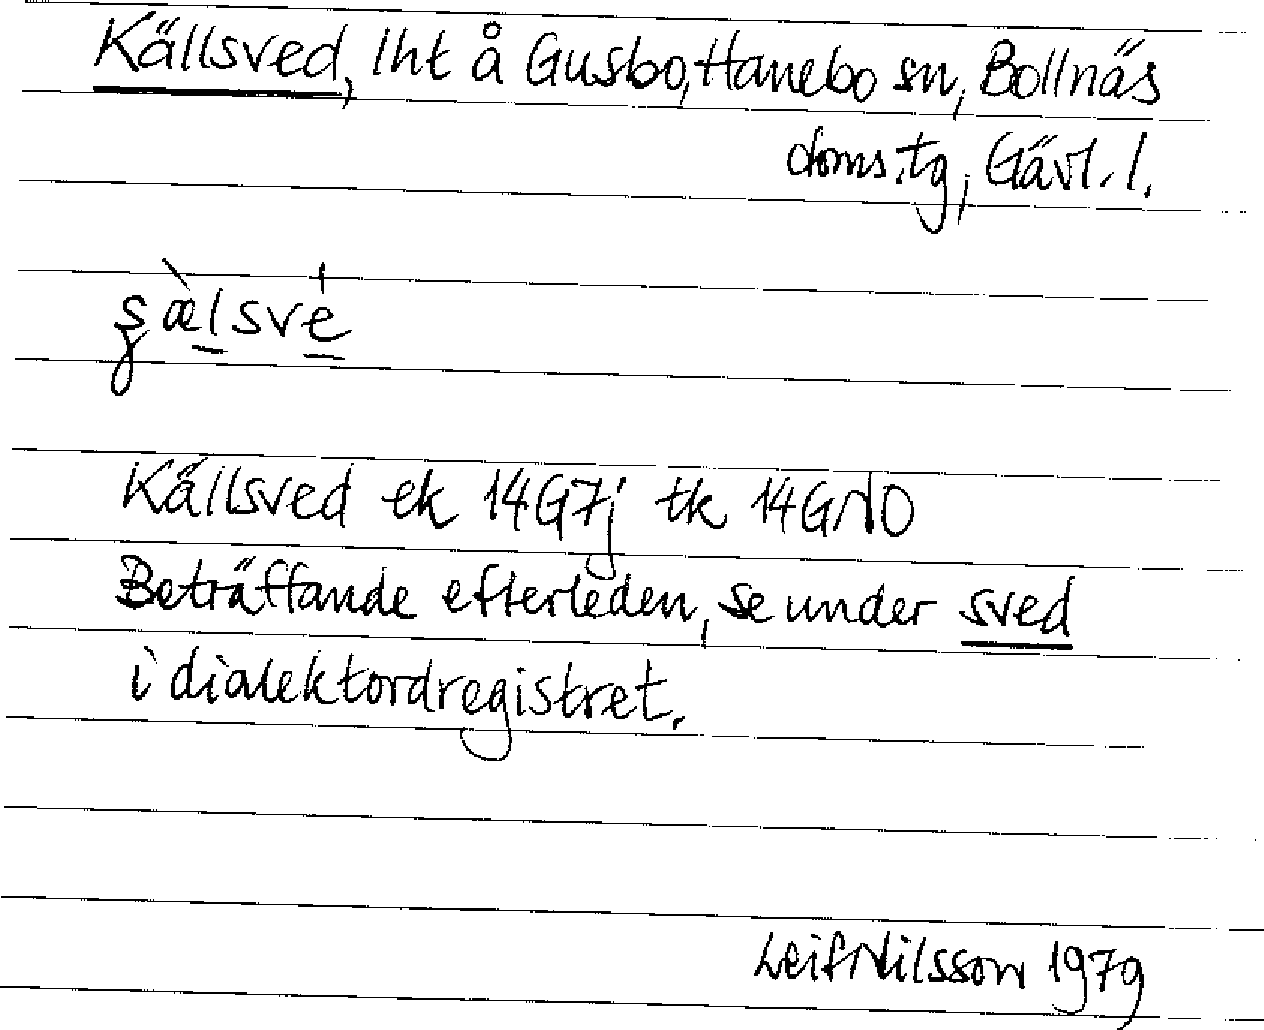 Källsved, lht å Gusbo, Hanebo sn, Bollnäs
doms.tg, Gävl. l.
Källsved ek 14G7j tk 14GNO
Beträffande efterleden, se under sved
i dialektordregistret.
Leif Nilsson 1979